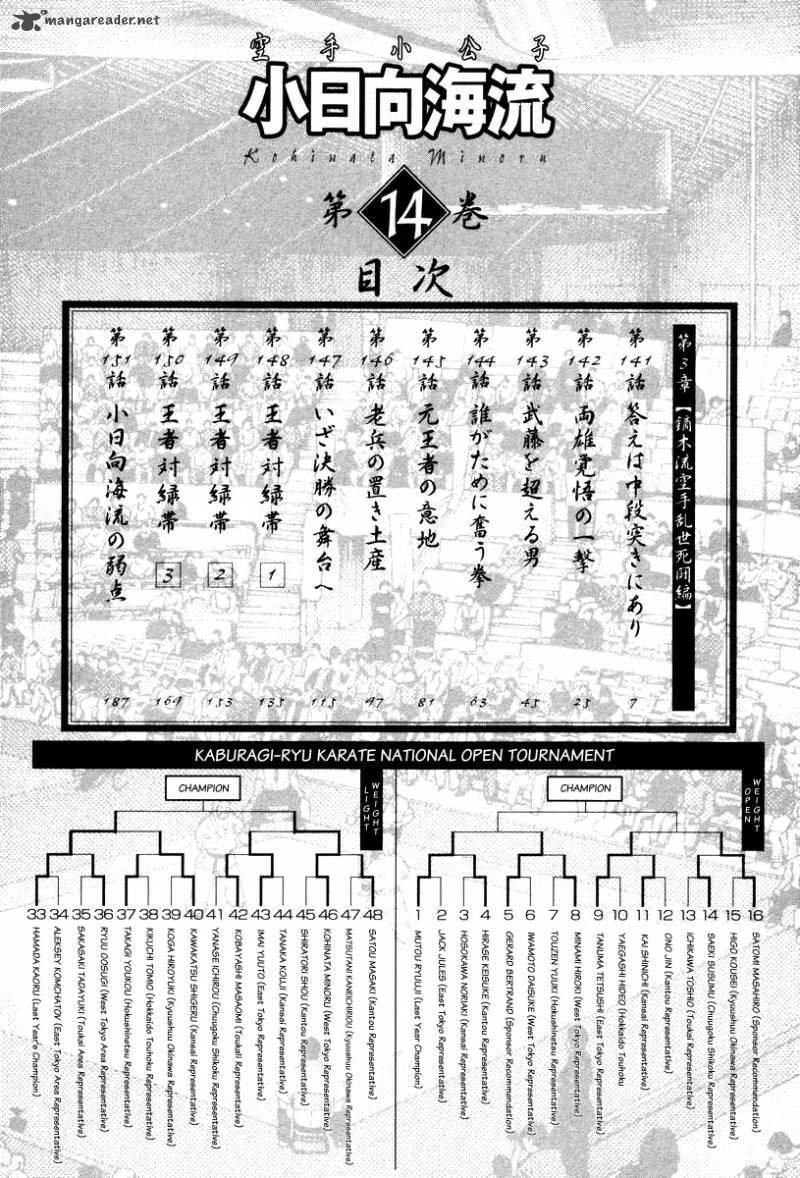 mangareader.net
空手小公子
小日向海流
Kohinata Minoru
第14巻
目次
第3章【鏑木流空手乱世死闘編】
第141話 答えは中段突きにあり 7
第142話 両雄覚悟の一撃 25
第143話 武藤を超える男 45
第144話 誰がために奮う拳 63
第145話 元王者の意地 81
第146話 老兵の置き土産 97
第147話 いざ決勝の舞台へ 115
第148話 王者対緑帯 1 135
第149話 王者対緑帯 2 153
第150話 王者対緑帯 3 169
第151話 小日向海流の弱点 187
KABURAGI-RYU KARATE NATIONAL OPEN TOURNAMENT
CHAMPION
LIGHT WEIGHT
33 HAMADA KAORU (Last Year's Champion)
34 ALEKSEY KOMCHATOV (East Tokyo Area Representative)
35 SAKASAKI TADAYUKI (Toukai Area Representative)
36 RYUU OOSUGI (West Tokyo Area Representative)
37 TAKAGI YOUKOU (Hokushinetsu Representative)
38 KIKUCHI TOMIO (Hokkeido Touhoku Representative)
39 KOGA HIROYUKI (Kyuushuu Okinawa Representative)
40 KAWAKATSU SHIGERU (Kansai Representative)
41 YANASE ICHIROU (Chuugoku Shikoku Representative)
42 KOBAYASHI MASAOMI (Toukaii Representative)
43 IMAI YUUTO (East Tokyo Representative)
44 TANAKA KOUJI (Kansai Representative)
45 SHIRATORI SHOU (Kantou Representative)
46 KOHINATA MINORU (West Tokyo Representative)
47 MATSUTANI KANEICHIROU (Kyuushuu Okinawa Representative)
48 SATOU MASAKI (Kantou Representative)
CHAMPION
OPEN WEIGHT
1 MUTOU RYUUJI (Last Year Champion)
2 JACK JULES (East Tokyo Representative)
3 HOSOKAWA NORIAKI (Kansai Representative)
4 HIRASE KEISUKE (Kantou Representative)
5 GERARD BERTRAND (Sponsor Recommendation)
6 IWAMOTO DAISUKE (West Tokyo Representative)
7 TOUZEN YUUKI (Hokushinetsu Representative)
8 MINAMI HIROKI (West Tokyo Representative)
9 TANUMA TETSUSHI (East Tokyo Representative)
10 YAEGASHI HIDEO (Hokkeido Touhoku
11 KAI SHINICHI (Kansai Representative)
12 ONO JIN (Kantou Representative)
13 ICHIKAWA TOSHIO (Toukai Representative)
14 SAEKI SUSUMU (Chuugoku Shikoku Representative)
15 HIGO KOUSEI (Kyuushuu Okinawa Representative)
16 SATOMI MASAHIRO (Sponsor Recommendation)